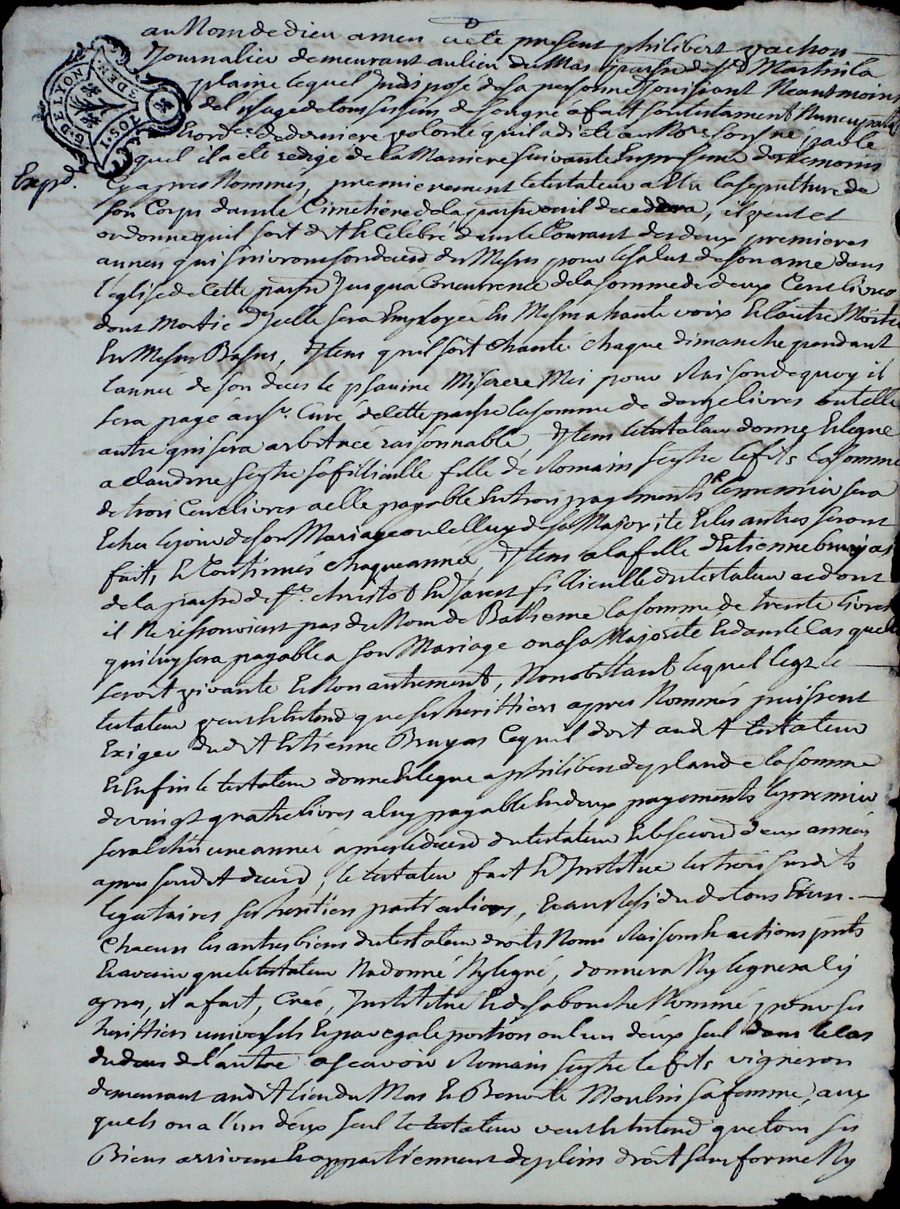 au Nom de dieu amen a eté present philibert vachon
Journalier demeurant au lieu du Mas parsse de St Martin la
plaine lequel Indisposé de sa personne Jouissant Neantmoins
de l'usage de tous ses sens de son gré a fait son testament Nuncupatif
et ordce de derniere volonté qu'il a dicté au Nore soussigné par le
quel il a eté redigé de la Maniere suivante En presence des temoins
Expd.
Cy apres Nommés, premierement le testateur a Elu la sepulture de
son Corps dans le Cimetiere de la parsse ou il decedera, il veut et
ordonne qu'il soit dit et Celebré dans le Courant des deux premieres
années qui suivront son deces des Messes pour le salut de son ame dans
l'eglise de Cette parsse Jusqu'a Concurrence de la somme de deux Cent livres
dont Moitié d'Icelle sera Employée En Messes a haute voix Et l'autre Moitié
En Messes Basses, Item qu'il soit Chanté chaque dimanche pendant
l'année de son deces le psaume Miserere Mei pour Raison de quoy il
sera payé au Sr. Curé de Cette parsse la somme de douze livres ou telle
autre qui sera arbitrée raisonnable, Item le testateur donne Et legue
a Claudine seythe sa fillieulle fille de Romain Seythe le fils la somme
de trois Cent livres a elle payable En trois payements le premier sera
Echu le jour de son Mariage ou Celluy de sa Majorité Et les autres seront
faits, Et Continués chaque année, Item a la fille d'Etienne bruyas
de la parsse de St. christot En Jarest fillieulle du testateur et dont
il Ne ressouvient pas du Nom de Bathême la somme de trente livres
qui luy sera payable a son Mariage ou a sa Majorité Et dans le Cas qu'elle
seroit vivante Et Non autrement, Nonobstant lequel legs le
testateur veut Et Entend que ses herittiers apres Nommés puissent
Exiger dudit Etienne Bruyas Ce qu'il doit audit testateur
Et Enfin le testateur donne Et legue a philibert desplande la somme
de vingt quatre livres a luy payable En deux payements le premier
sera Echu une année apres le deces du testateur Et le second deux années
apres son dit deces, le testateur fait Et Institue les trois susdits
legataires ses heritiers particuliers, Et au Residu de tous Et un
Chacun les autres biens du testateur droits Noms Raisons Et actions pnts
Et avenir que le testateur N'a donné Ny legué, donnera Ny leguera Cy
apres, il a fait, Créé, Institué Et de sa bouche Nommé pour ses
herittiers universels Et par egale portion ou l'un d'eux seul dans le cas
du deces de l'autre a scavoir Romain seythe le fils vigneron
demeurant audit lieu du Mas Et Benoite Moulin sa femme, aux
quels ou a l'un d'eux seul le testateur veut Et Entend que tous ses
Biens arrivent Et appartiennent de plein droit sans forme Ny